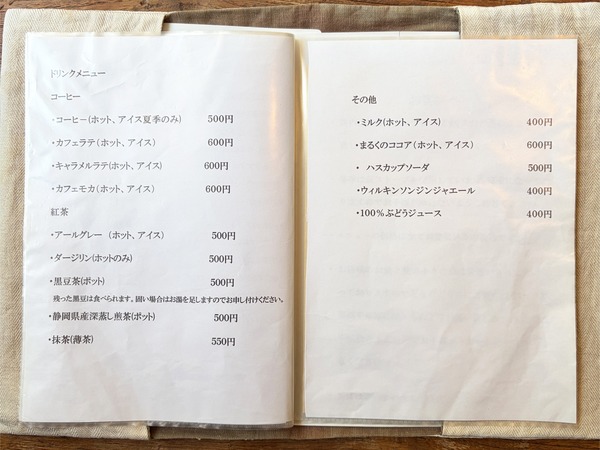 ドリンクメニュー
コーヒー
・コーヒー(ホット、アイス夏季のみ) 500円
・カフェラテ(ホット、アイス) 600円
・キャラメルラテ(ホット、アイス) 600円
・カフェモカ(ホット、アイス) 600円
紅茶
・アールグレー (ホット、アイス) 500円
・ダージリン(ホットのみ) 500円
・黒豆茶(ポット) 500円
残った黒豆は食べられます。固い場合はお湯を足しますのでお申し付けください。
・静岡県産深蒸し煎茶(ポット) 500円
・抹茶(薄茶) 550円
その他
・ミルク(ホット、アイス) 400円
・まるくのココア(ホット、アイス) 600円
・ ハスカップソーダ 500円
・ウィルキンソンジンジャエール 400円
・100%ぶどうジュース 400円